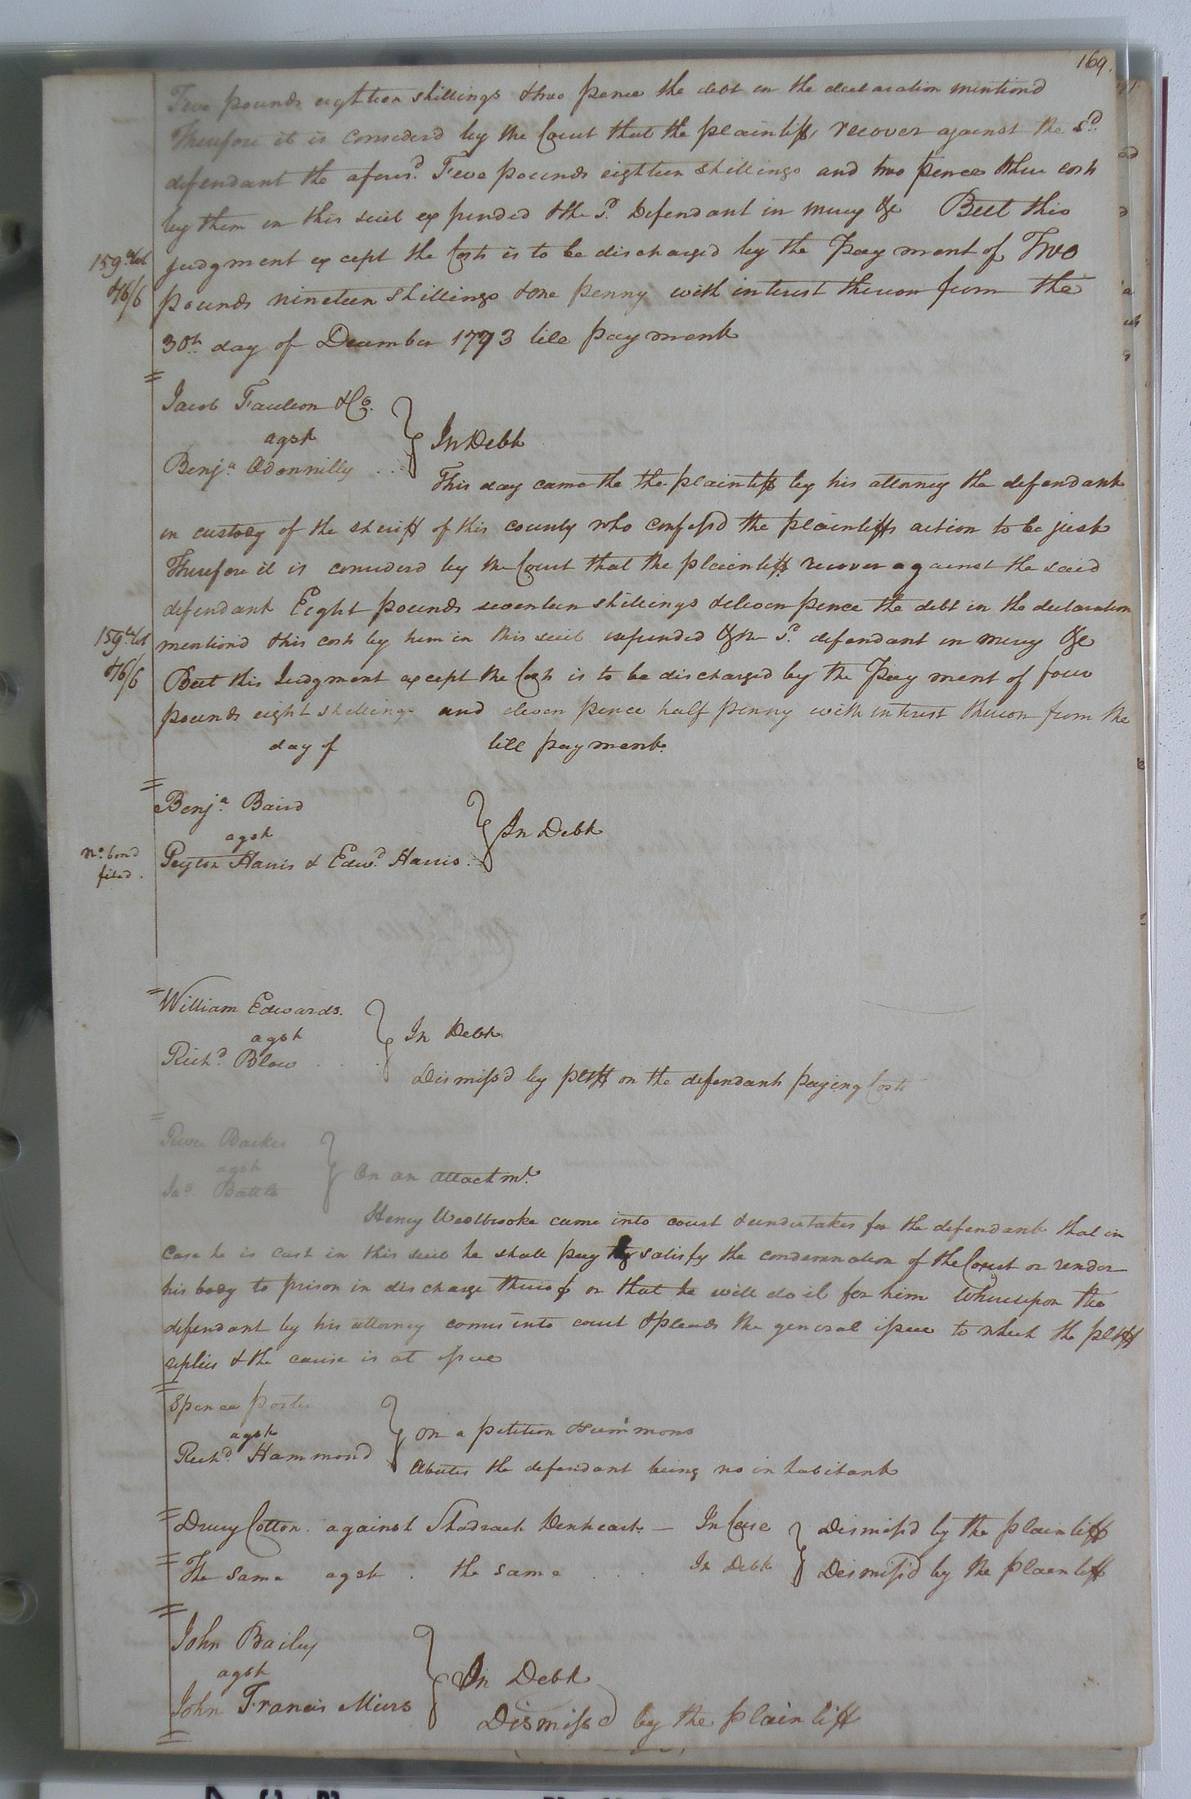 169.
Five pounds eighteen shillings & two pence the debt in the declaration mentiond
Therefore it is considerd by the Court that the plaintiffs recover against the sd.
defendant the afores.d Five pounds eighteen shillings and two pence & their costs
by them in this suit expended & the sd. Defendant in mercy &c But this
judgment except the Costs is to be discharged by the Payment of Two
pounds nineteen shillings & one penny with interest thereon from the
30th day of December 1793 till payment
Jacob Faulcon & Co.
agst
Benja. Odonnilly
In Debt
This day came the the plaintiff by his attorney the defendant
in custody of the sheriff of this county who confessd the plaintiffs action to be just
Therefore it is considerd by the Court that the plaintiff recover against the said
defendant Eight pounds seventeen shillings & eleven pence the debt in the declaration
mentiond & his costs by him in this suit expended & the sd. defendant in mercy &c
But this Judgment except the Costs is to be discharged by the Payment of four
pounds eight shillings and eleven pence half penny with interest thereon from the
day of till payment.
Benja. Baird
agst
Peyton Harris & Edwd. Harris.
In Debt
no. bond
filed.
William Edwards.
agst
Richd. Blow
In Debt
Dismissd by pltff on the defendants paying Costs
agst
Battle
On an attachmt.
Henry Westbrooke came into court & undertakes for the defendant that in
case he is cast in this suit he shall pay & satisfy the condemnation of the Court or render
his body to prison in discharge thereof or that he will do it for him Whereupon the
defendant by his attorney comes into court & pleads the general issue to which the pltff
replies & the cause is at issue
agst
Richd. Hammond
On a petition & summons
Abates the defendant being no inhabitant
Drury Cotton. against Shadrach — In Case Dismissd by the plaintiff
The same agst. the same In Debt Dismissd by the plaintiff
John Bailey
agst
John Francis Miers
In Debt
Dismissd by the plaintiff